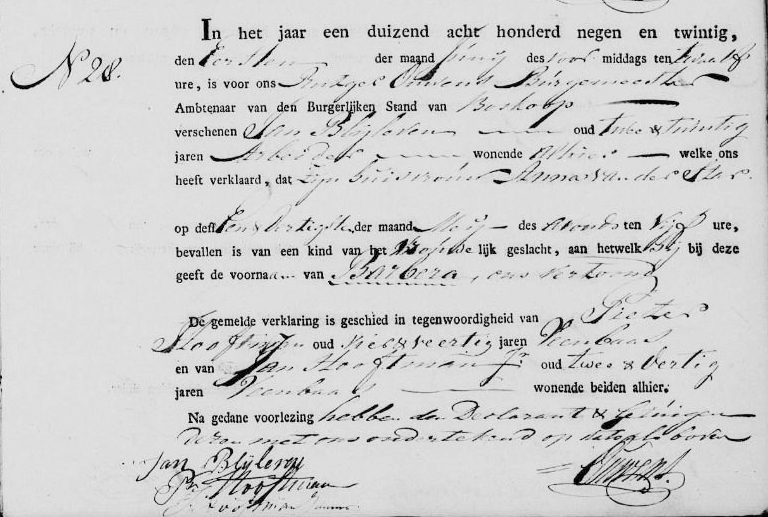 N 28.
In het jaar een duizend acht honderd negen en twintig,
den Eersten der maand Junij des voor middags ten twaalf
ure, is voor ons Rutger Ouwens Burgemeester
Ambtenaar van den Burgerlijken Stand van Boskoop
verschenen Jan Blijleven oud twee & twintig
jaren Arbeider wonende Alhier welke ons
heeft verklaard, dat zijn huisvrouw Anna van der Star
op den Een & dertigste der maand Meij des Avonds ten Vijf ure,
bevallen is van een kind van het Vrouwelijk geslacht, aan hetwelk hij bij deze
geeft de voornaam van Barbera, ons vertoond
De gemelde verklaring is geschied in tegenwoordigheid van Pieter
Hooftman oud & veertig jaren Veenbaas
en van Jan Hooftman Jr. oud twee & dertig
jaren Veenbaas wonende beiden alhier.
Na gedane voorlezing hebben den Declarant & getuigen
dezen met ons ondertekend op dato als boven
Jan Blijleven
Pr Hooftman
Ouwens.
Hooftman Junior